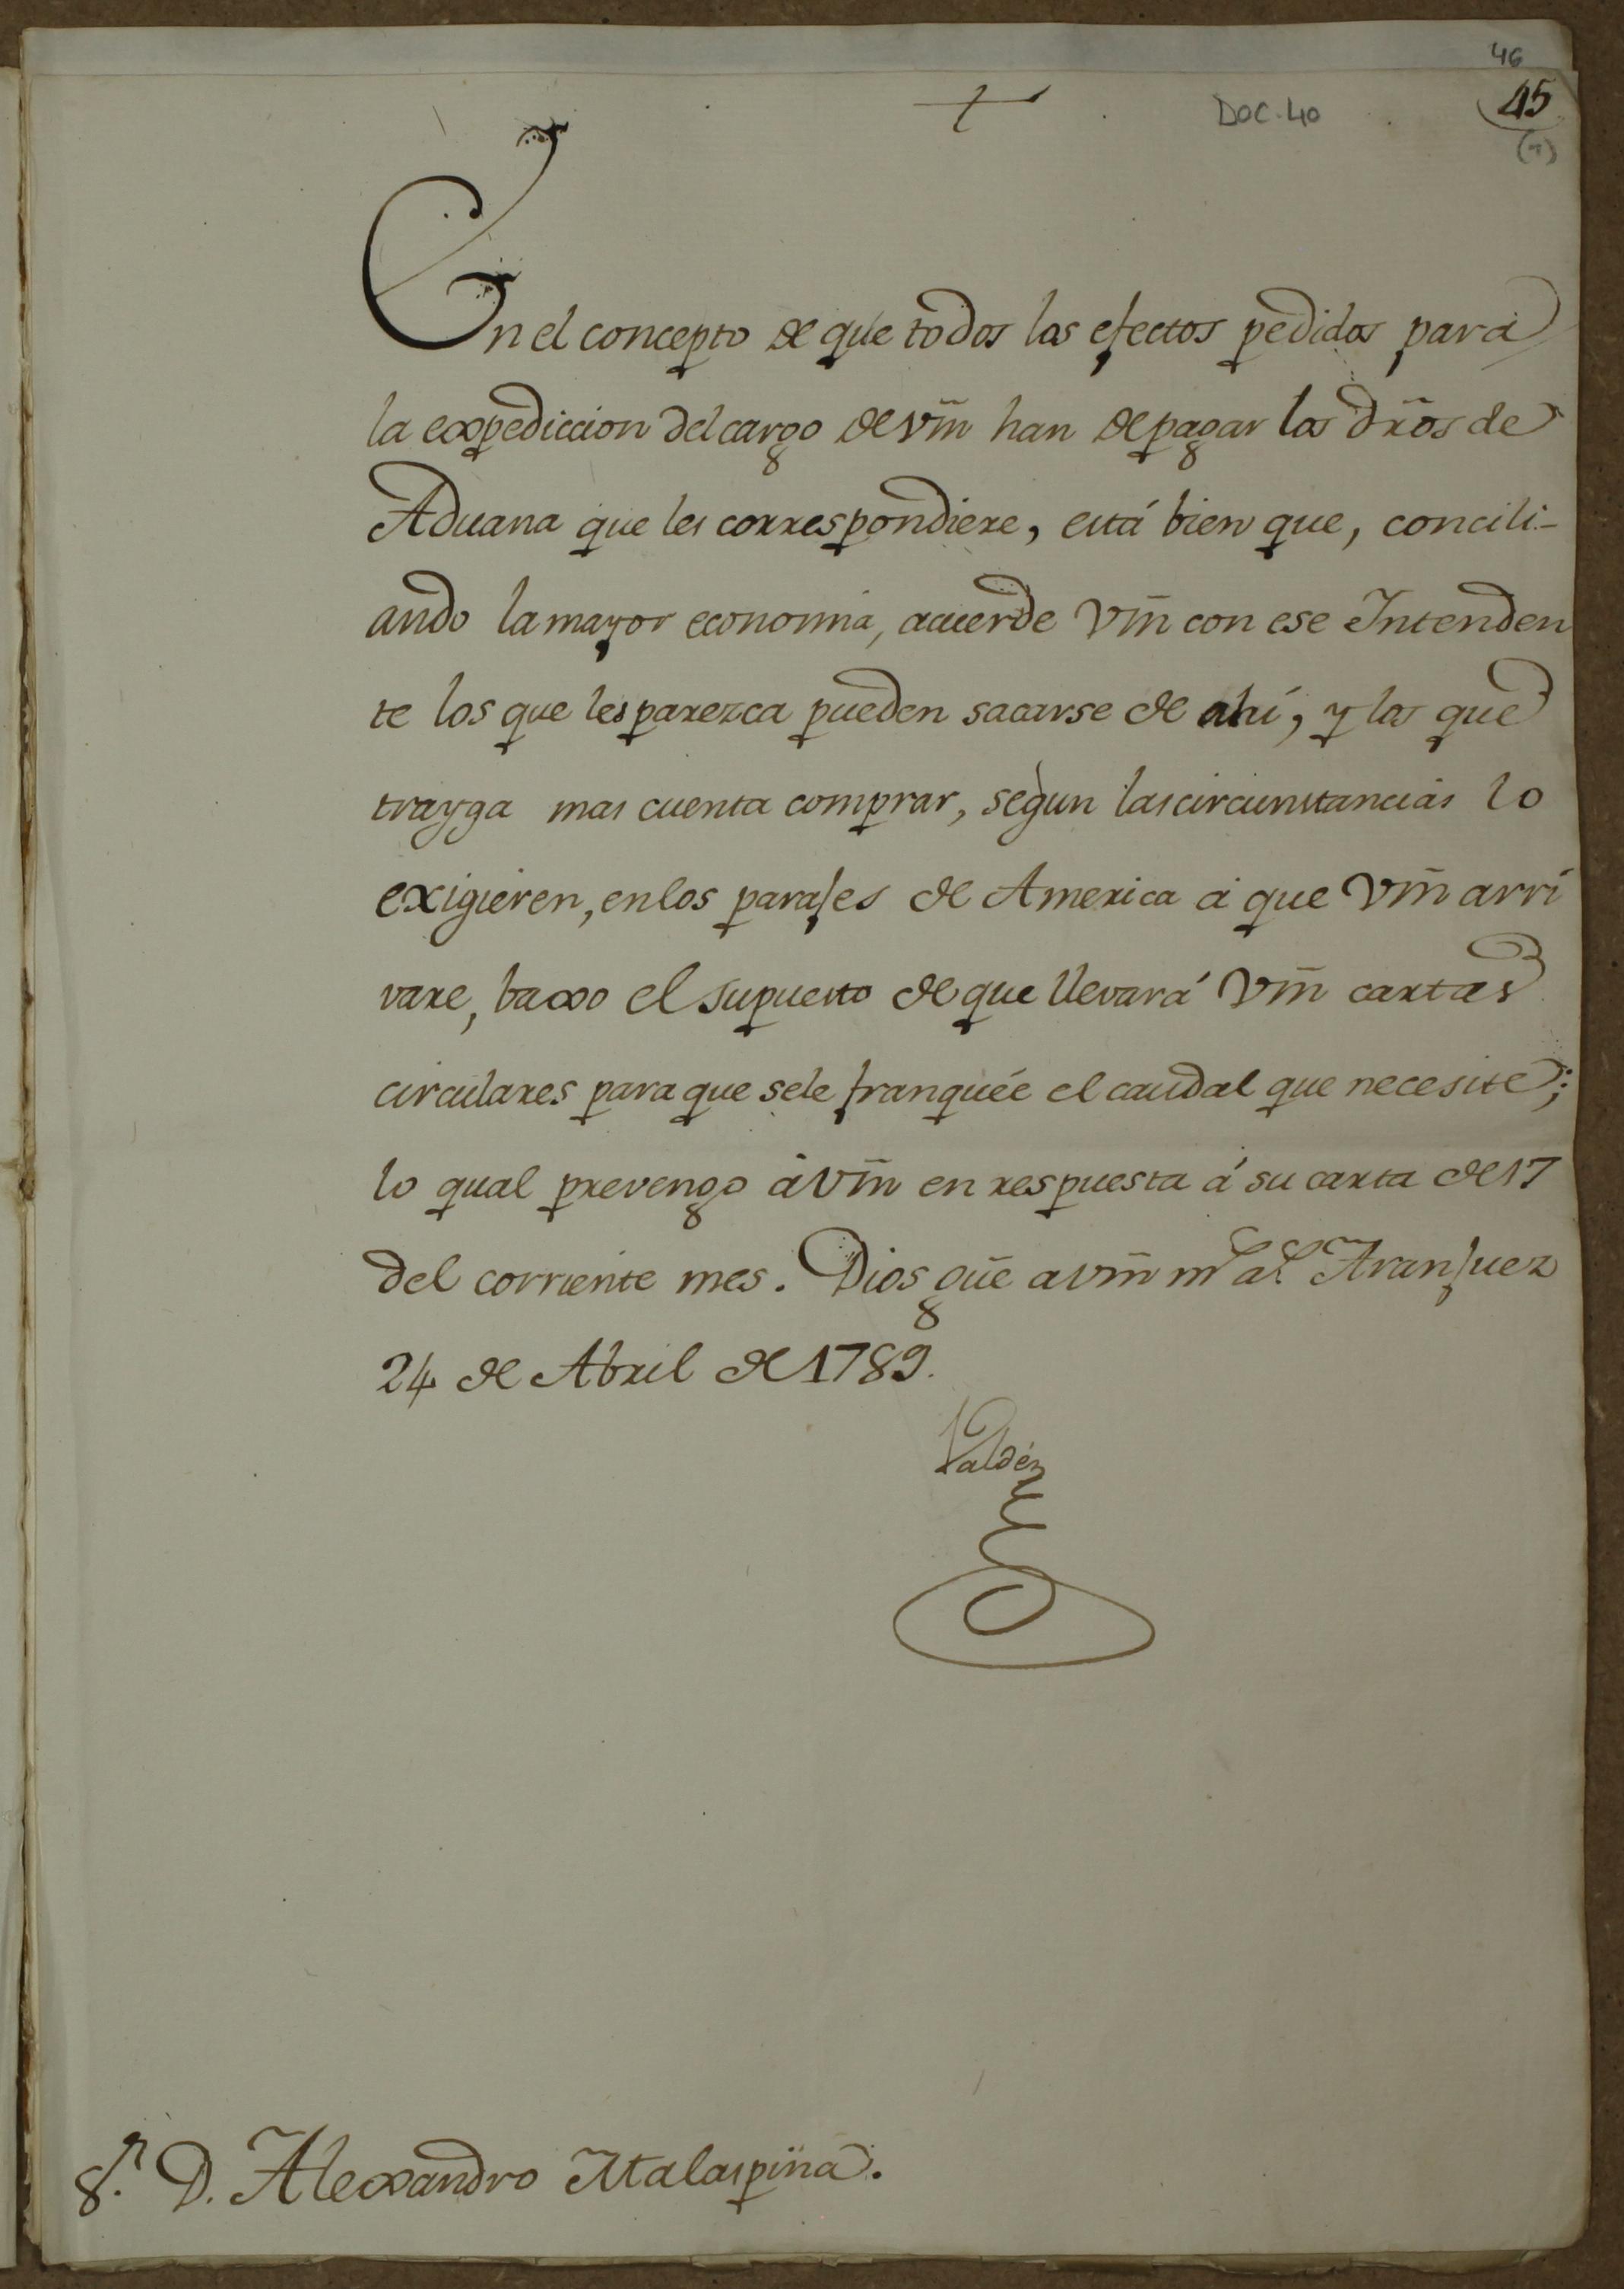 46
DOC. 40
45
En el concepto de que todos los efectos pedidos para
la expediccion del cargo de Vm̃ han de pagar los dr̃os de
Aduana que les correspondiere, está bien que, concili-
ando la mayor economia, acuerde Vm̃ con ese Intenden
te los que les parezca pueden sacarse de ahí, y los que
trayga mas cuenta comprar, segun las circunstancias lo
exigieren, en los parajes de America á que Vm̃ arri
vare, baxo el supuesto de que llevará Vm̃ cartas
circulares para que sele franquée el caudal que necesite;
lo qual prevengo á Vm̃ en respuesta á su carta de 17
del corriente mes. Dios gũe a Vm̃ m.s a.s Aranjuez
24 de Abril de 1789.
Valdés
S.r D. Alexandro Malaspina.